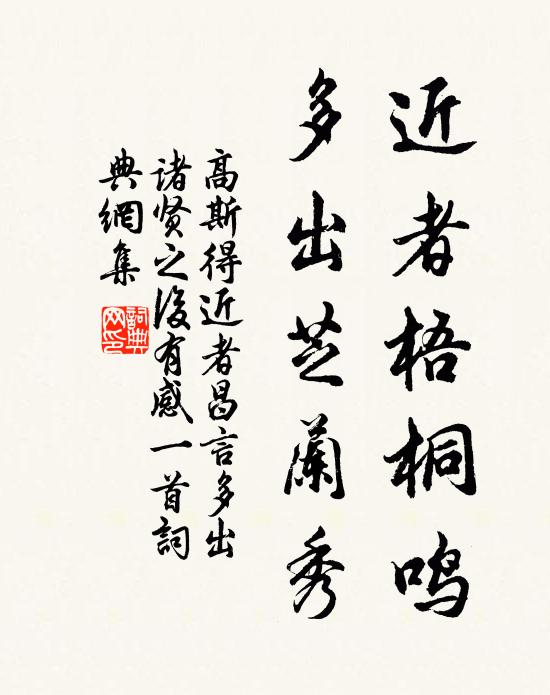 近者梧桐鸣
多出芝蘭秀
高斯得近者昌言多出
诸贤之後有感一首詞
典網集
詞典网印